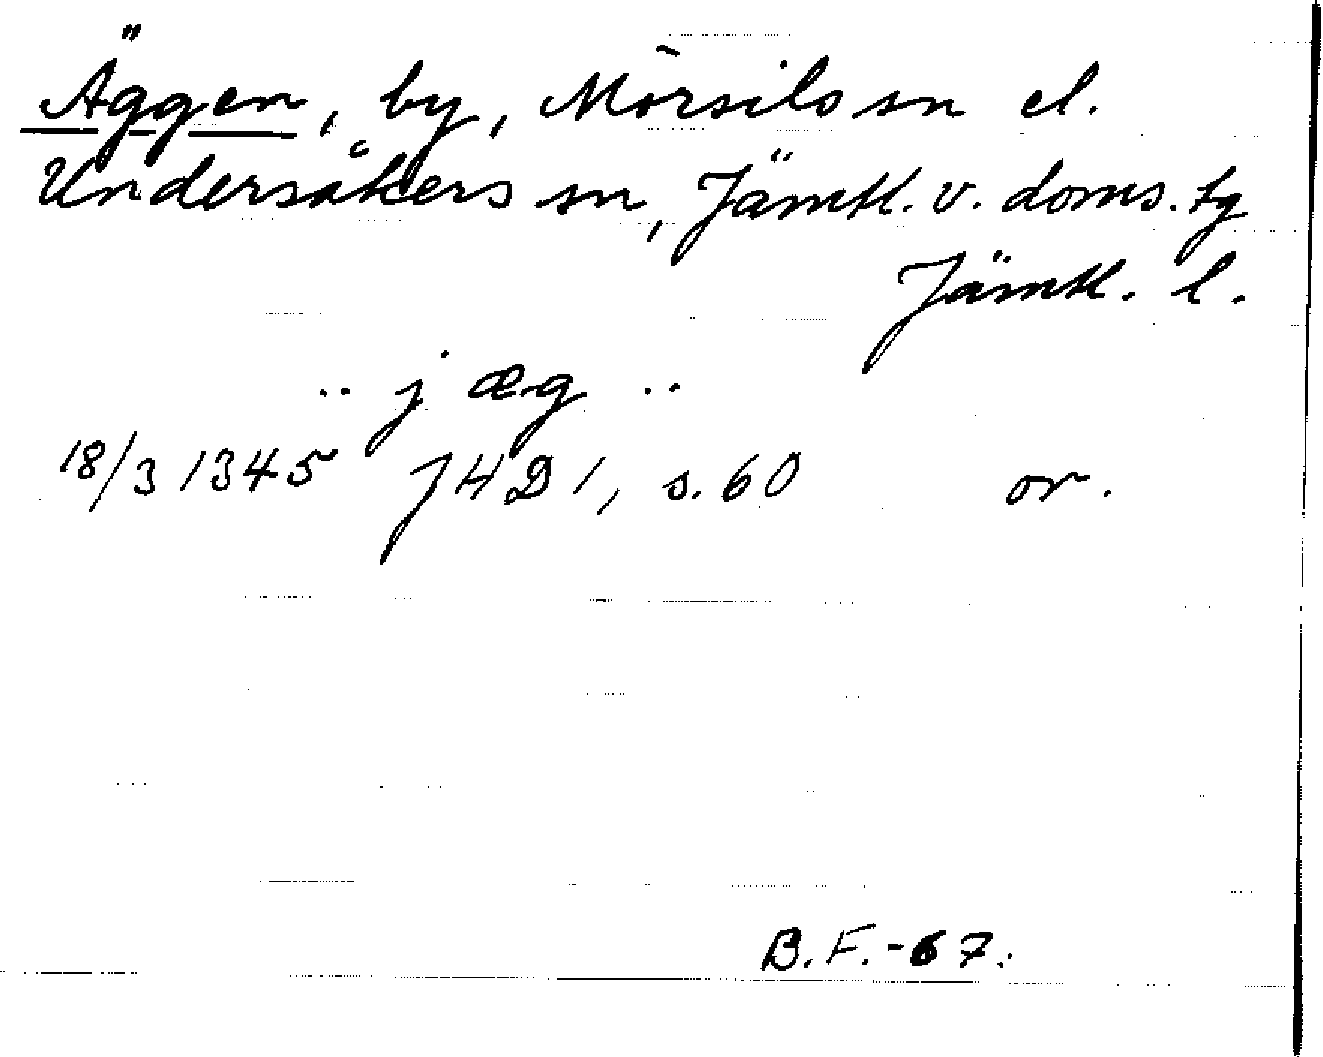 Äggen, by, Mörsils sn el.
Undersåkers sn, Jämtl. v. doms. tg
Jämtl. l.
.. j æg ..
18/3 1345 JHD 1, s. 60 or.
B.F.-67.